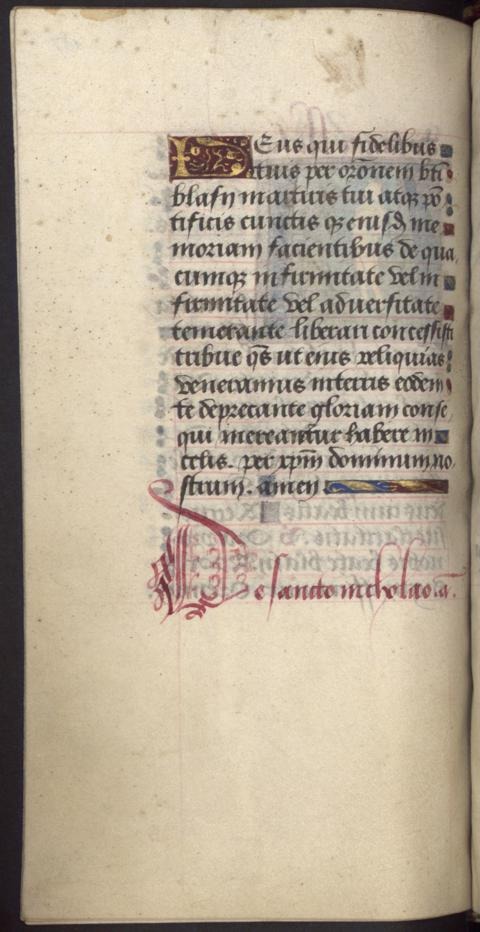 Deus qui fidelibus
tuis per or̄onem bt̄i
blasÿ martiris tui atqꝫ pō
tificis cunctis qꝫ eiusđ me
moriam facientibus de qua
cumqꝫ infirmitate vel in
firmitate vel adversitate
temetante liberari concessisti
tribue qs̄ ut eius reliquias
veneramus interris eodem
te deprecante gloriam conse
qui mereantur habere in
celis. per xp̄m dominum no
strum. amen
De sancto nicholao. a.